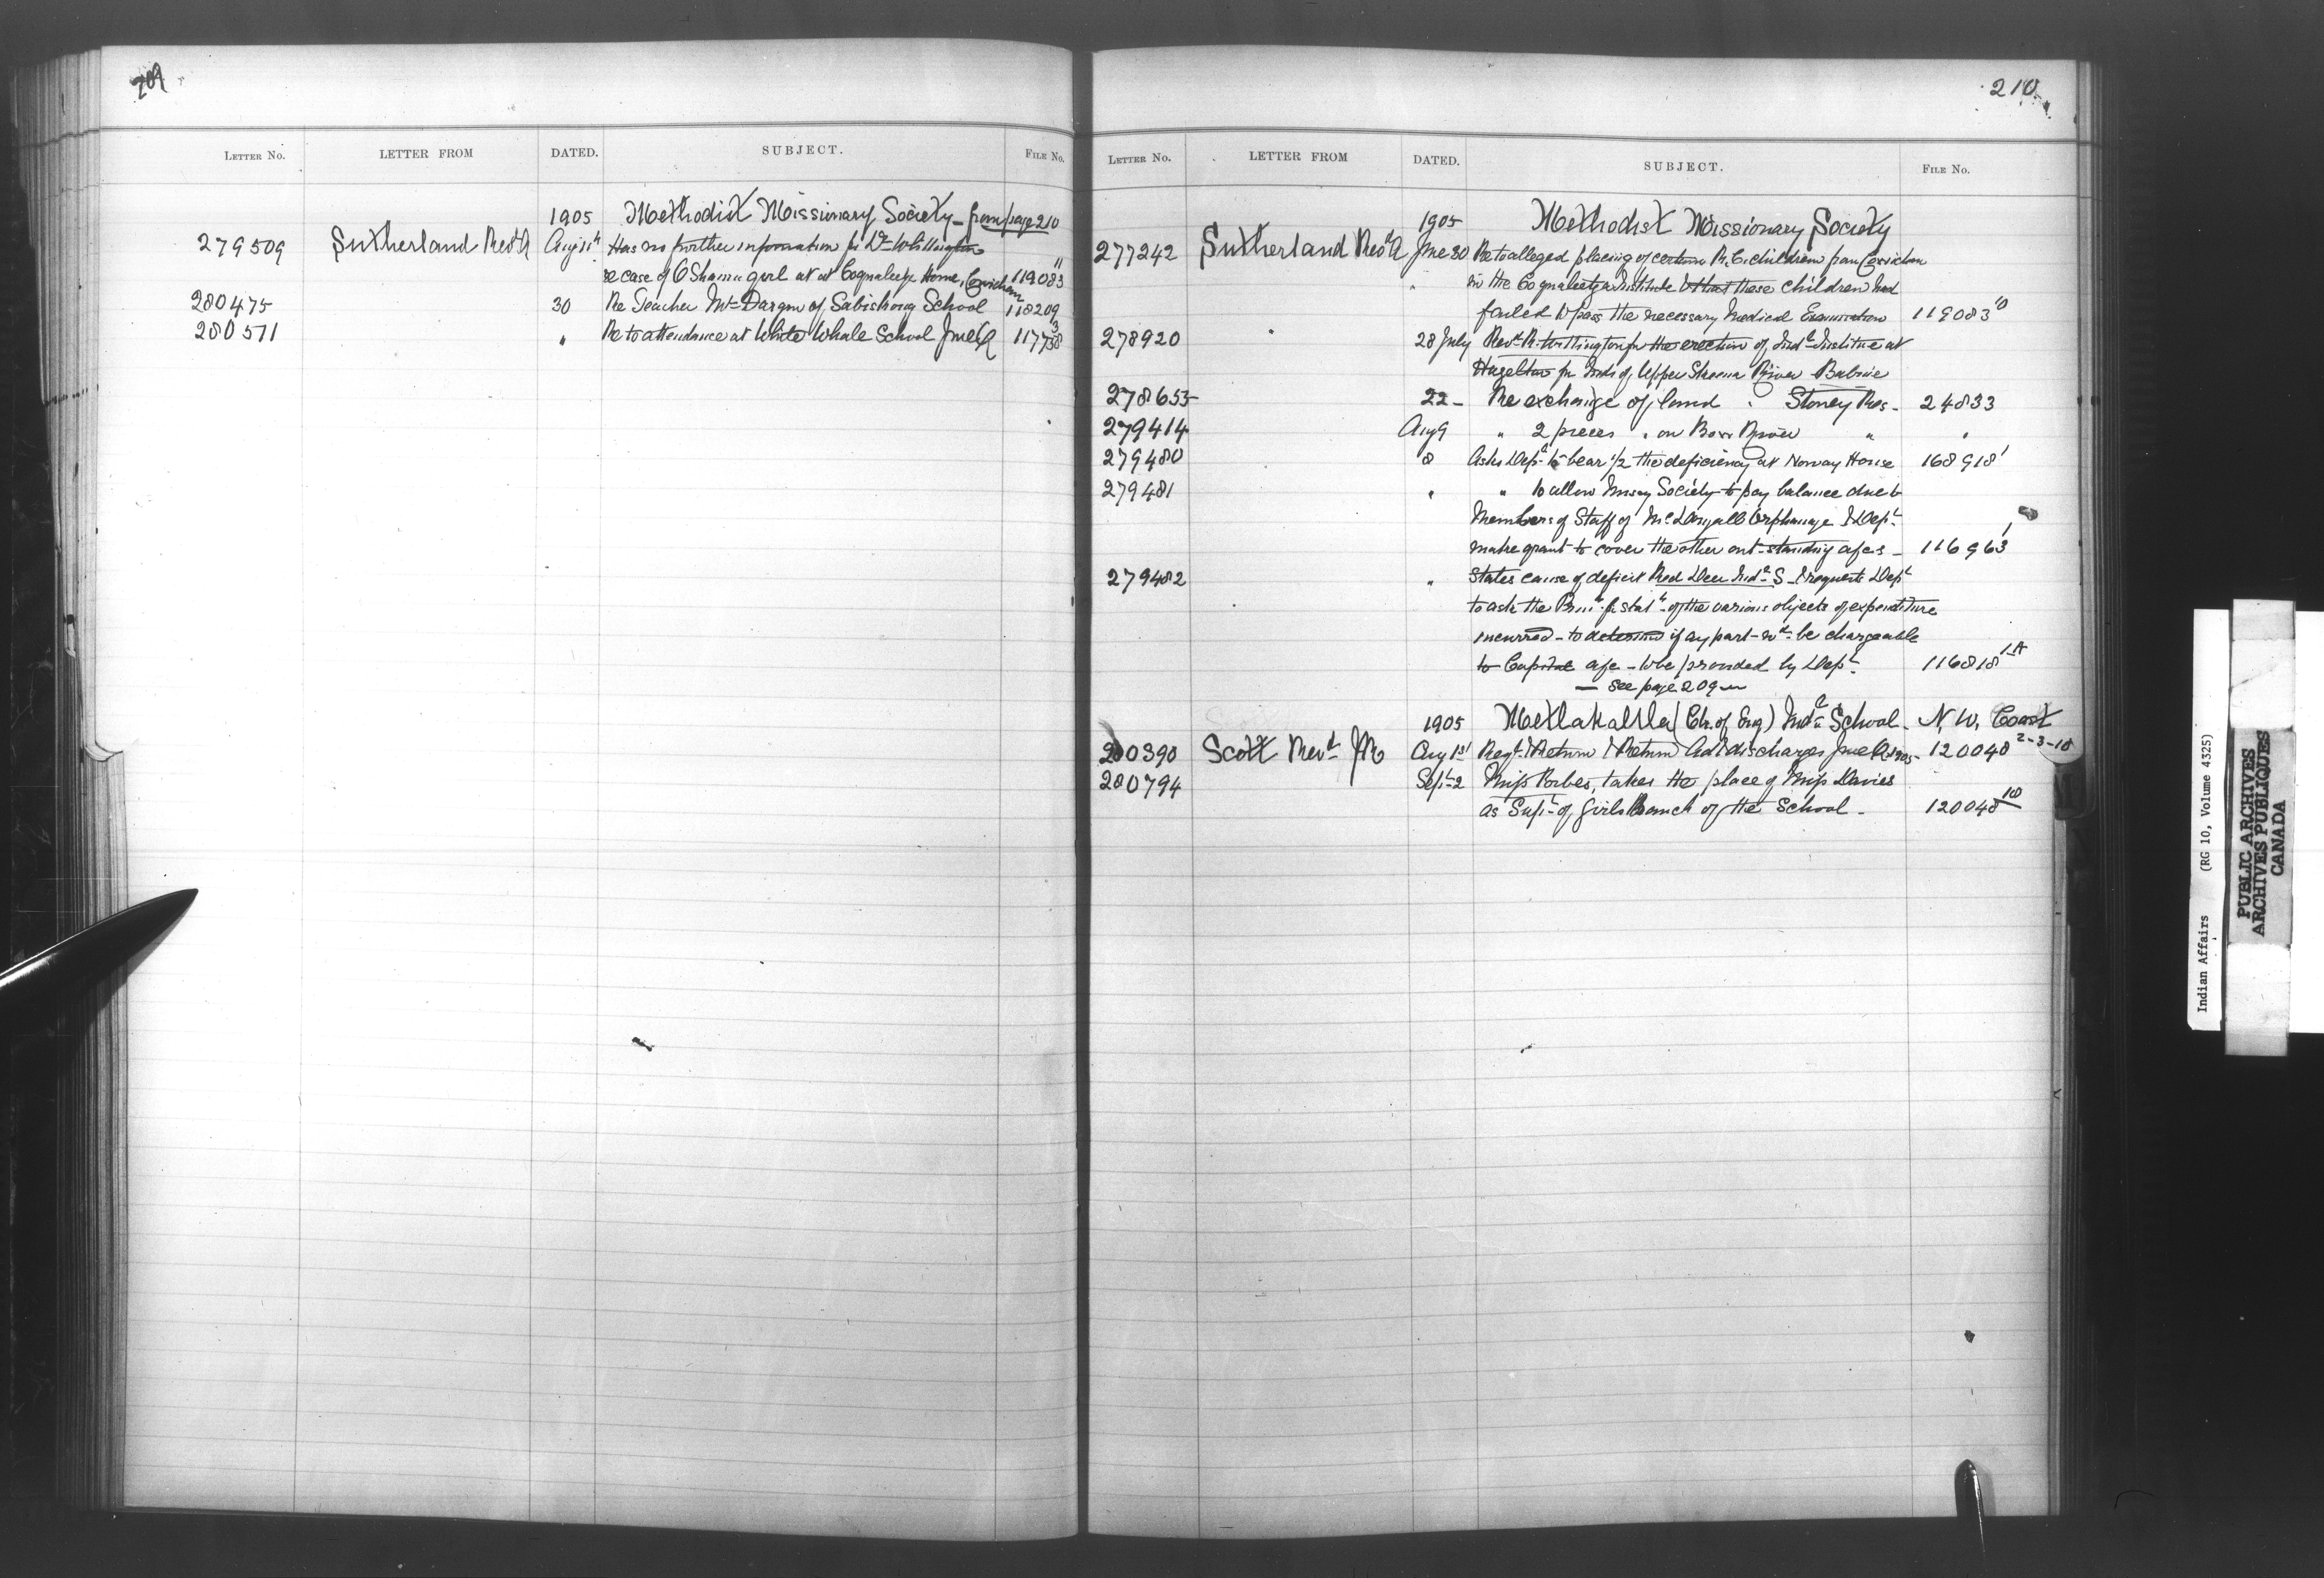 209
LETTER No. LETTER FROM DATED. SUBJECT. FILE No.
1905 Methodist Missionary Society - from page 210
279509 Sutherland Revd A Aug 11th Has no further information fr Dr Whittington
re case of O'Shamu girl at Coqualeetza Home, Cowichan 119083 11
280475 30 Re Teacher Mr Dargue of Sabiskong School 118209
280571 " Re to attendance at White Whale School June Qr 117738 3
210
LETTER No. LETTER FROM DATED. SUBJECT. FILE No.
1905 Methodist Missionary Society
277242 Sutherland Revd A June 30 Re to alleged placing of certain R.C. children from Cowichan
in the Coqualeetza Institute & that these children had
failed to pass the necessary Medical Examination 119083 10
278920 " 28 July Revd R. Whittington for the erection of Indl Institue at
Hazelton for Inds of Upper Skeena River Babine
278655 22 - Re exchange of land . Stoney Res - 24833
279414 Aug 9 " 2 pieces " on Bow River " "
279480 8 Asks Dept to bear 1/2 the deficiency at Norway House 168918 1
279481 " " to allow Missy Society to pay balance due to
Members of Staff of McDougall Orphanage & Dept
make grant to cover the other out-standing a/cs - 116963 1
279482 " States cause of deficit Red Deer Indl S - & requests Dept
to ask the Prinl for statt of the various objects of expenditure
incurred - to determine if any part wd be chargeable
to Capital a/c - to be provided by Dept 116818 1A
— See page 209 —
1905 Metlakahtla (Ch. of Eng) Indl School - N. W. Coast
280390 Scott Revd JR Aug 1st Regt Return & Return Ad & discharges June Qr 1905 - 120048 2-3-10
280794 Sept 2 Miss Forbes, takes the place of Miss Davies
as Supt of Girls Branch of the School - 120048 10
Indian Affairs (RG 10, Volume 4325)
PUBLIC ARCHIVES
ARCHIVES PUBLIQUES
CANADA